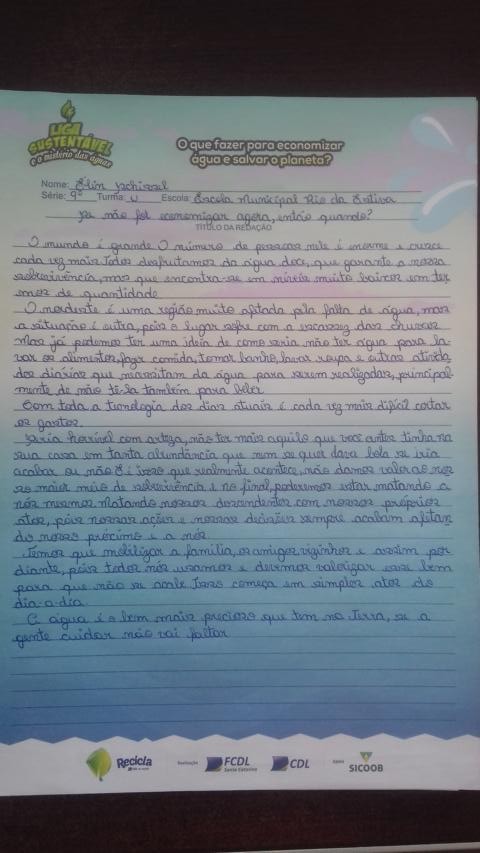 LIGA
SUSTENTÁVEL
e o mistério das águas
O que fazer para economizar
água e salvar o planeta?
Nome: Elin
Série: 9º Turma: U Escola: Escola Municipal Rio da Estiva
se não for economizar agora, então quando?
TÍTULO DA REDAÇÃO
O mundo é grande O número de pessoas nele é enorme e cresce
cada vez mais Todos desfrutamos da água doce, que garante a nossa
sobrevivência, mas que encontra-se em níveis muito baixos em ter
mos de quantidade
O nordeste é uma região muito afetada pela falta de água, mas
a situação é outra, pois o lugar sofre com a escassez das chuvas
Mas já podemos ter uma ideia de como seria, não ter água para la-
var os alimentos, fazer comida, tomar banho, lavar roupa e outras ativida
des diárias que necessitam da água para serem realizadas, principal-
mente de não tê-la também para beber
Com toda a tecnologia dos dias atuais é cada vez mais difícil cortar
os gastos.
Seria horrível com certeza, não ter mais aquilo que você antes tinha na
sua casa em tanta abundância que nem se quer dava bola se iria
acabar ou não E é isso que realmente acontece, não damos valor ao nos
so maior meio de sobrevivência e no final, poderemos estar matando a
nós mesmos Matando nossos descendentes com nossos próprios
atos, pois nossas ações e nossas decisões sempre acabam afetan
do nosso próximo e a nós.
Temos que mobilizar a família, os amigos vizinhos e assim por
diante, pois todos nós usamos e devemos valorizar esse bem
para que não se acabe Isso começa em simples atos do
dia-a-dia.
A água é o bem mais precioso que tem na Terra, se a
gente cuidar não vai faltar
Recicla
Realização
FCDL
Santa Catarina
CDL
Apoio
SICOOB